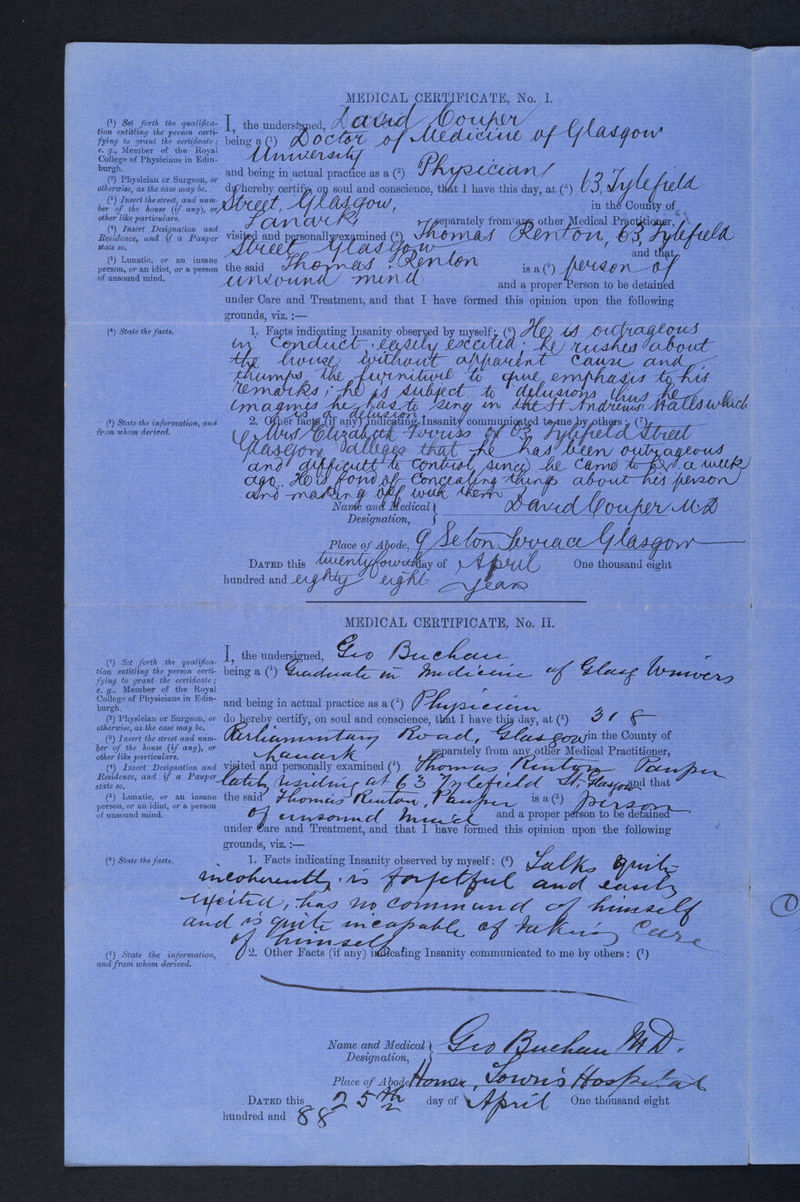 MEDICAL CERTIFICATE, No. I.
(¹) Set forth the qualifica-
tion entitling the person certi-
fying to grant the certificate;
e. g., Member of the Royal
College of Physicians in Edin-
burgh.
(²) Physician or Surgeon, or
otherwise, as the case may be.
(³) Insert the street, and num-
ber of the house (if any), or
other like particulars.
(⁴) Insert Designation and
Residence, and if a Pauper
state so.
(⁵) Lunatic, or an insane
person, or an idiot, or a person
of unsound mind.
(⁶) State the facts.
(⁷) State the information, and
from whom derived.
I, the undersigned, David Couper
being a (¹) Doctor of Medicine of Glasgow
University
and being in actual practice as a (²) Physician
do hereby certify, on soul and conscience, that I have this day, at (³) 63, Tylefield
Street, Glasgow, in the County of
Lanark, separately from any other Medical Practitioner,
visited and personally examined (⁴) Thomas Renton, 63, Tylefield
Street Glasgow and that
the said Thomas Renton is a (⁵) person of
unsound mind and a proper Person to be detained
under Care and Treatment, and that I have formed this opinion upon the following
grounds, viz. :—
1. Facts indicating Insanity observed by myself: (⁶) He is outrageous
in conduct, easily excited; he rushes about
the house without apparent cause and
thumps the furniture to give emphasis to his
remarks; he is subject to delusions thus he
imagines he has to sing in the St Andrews Halls which
is a delusion.
2. Other facts (if any) indicating Insanity communicated to me by others: (⁷)
Mrs Elizabeth of 63, Tylefield Street
Glasgow alleges that he has been outrageous
and difficult to control since he came to a week
ago. He is fond of concealing things about his person
and making off with them
Name and Medical Designation, David Couper M.D
Place of Abode, 9 Seton Terrace Glasgow
DATED this twentyfourth day of April One thousand eight
hundred and eighty eight years
MEDICAL CERTIFICATE, No. II.
(¹) Set forth the qualifica-
tion entitling the person certi-
fying to grant the certificate;
e. g., Member of the Royal
College of Physicians in Edin-
burgh.
(²) Physician or Surgeon, or
otherwise, as the case may be.
(³) Insert the street and num-
ber of the house (if any), or
other like particulars.
(⁴) Insert Designation and
Residence, and if a Pauper
state so.
(⁵) Lunatic, or an insane
person, or an idiot, or a person
of unsound mind.
(⁶) State the facts.
(⁷) State the information,
and from whom derived.
I, the undersigned, Geo Buchan
being a (¹) Graduate in Medicine of Glasg Univers
and being in actual practice as a (²) Physician
do hereby certify, on soul and conscience, that I have this day, at (³) 318
Parliamentary Road, Glasgow in the County of
Lanark separately from any other Medical Practitioner,
visited and personally examined (⁴) Thomas Renton Pauper
lately residing at 63 Tylefield St, Glasgow and that
the said Thomas Renton, Pauper is a (⁵) person
of unsound mind and a proper person to be detained
under Care and Treatment, and that I have formed this opinion upon the following
grounds, viz. :—
1. Facts indicating Insanity observed by myself: (⁶) Talks quite
incoherently, is forgetful and easily
excited, has no command of himself
and is quite incapable of taking care
of himself
2. Other Facts (if any) indicating Insanity communicated to me by others: (⁷)
Name and Medical Designation, Geo Buchan M.D.
Place of Abode, House, Town's Hospital
DATED this 25th day of April One thousand eight
hundred and 88